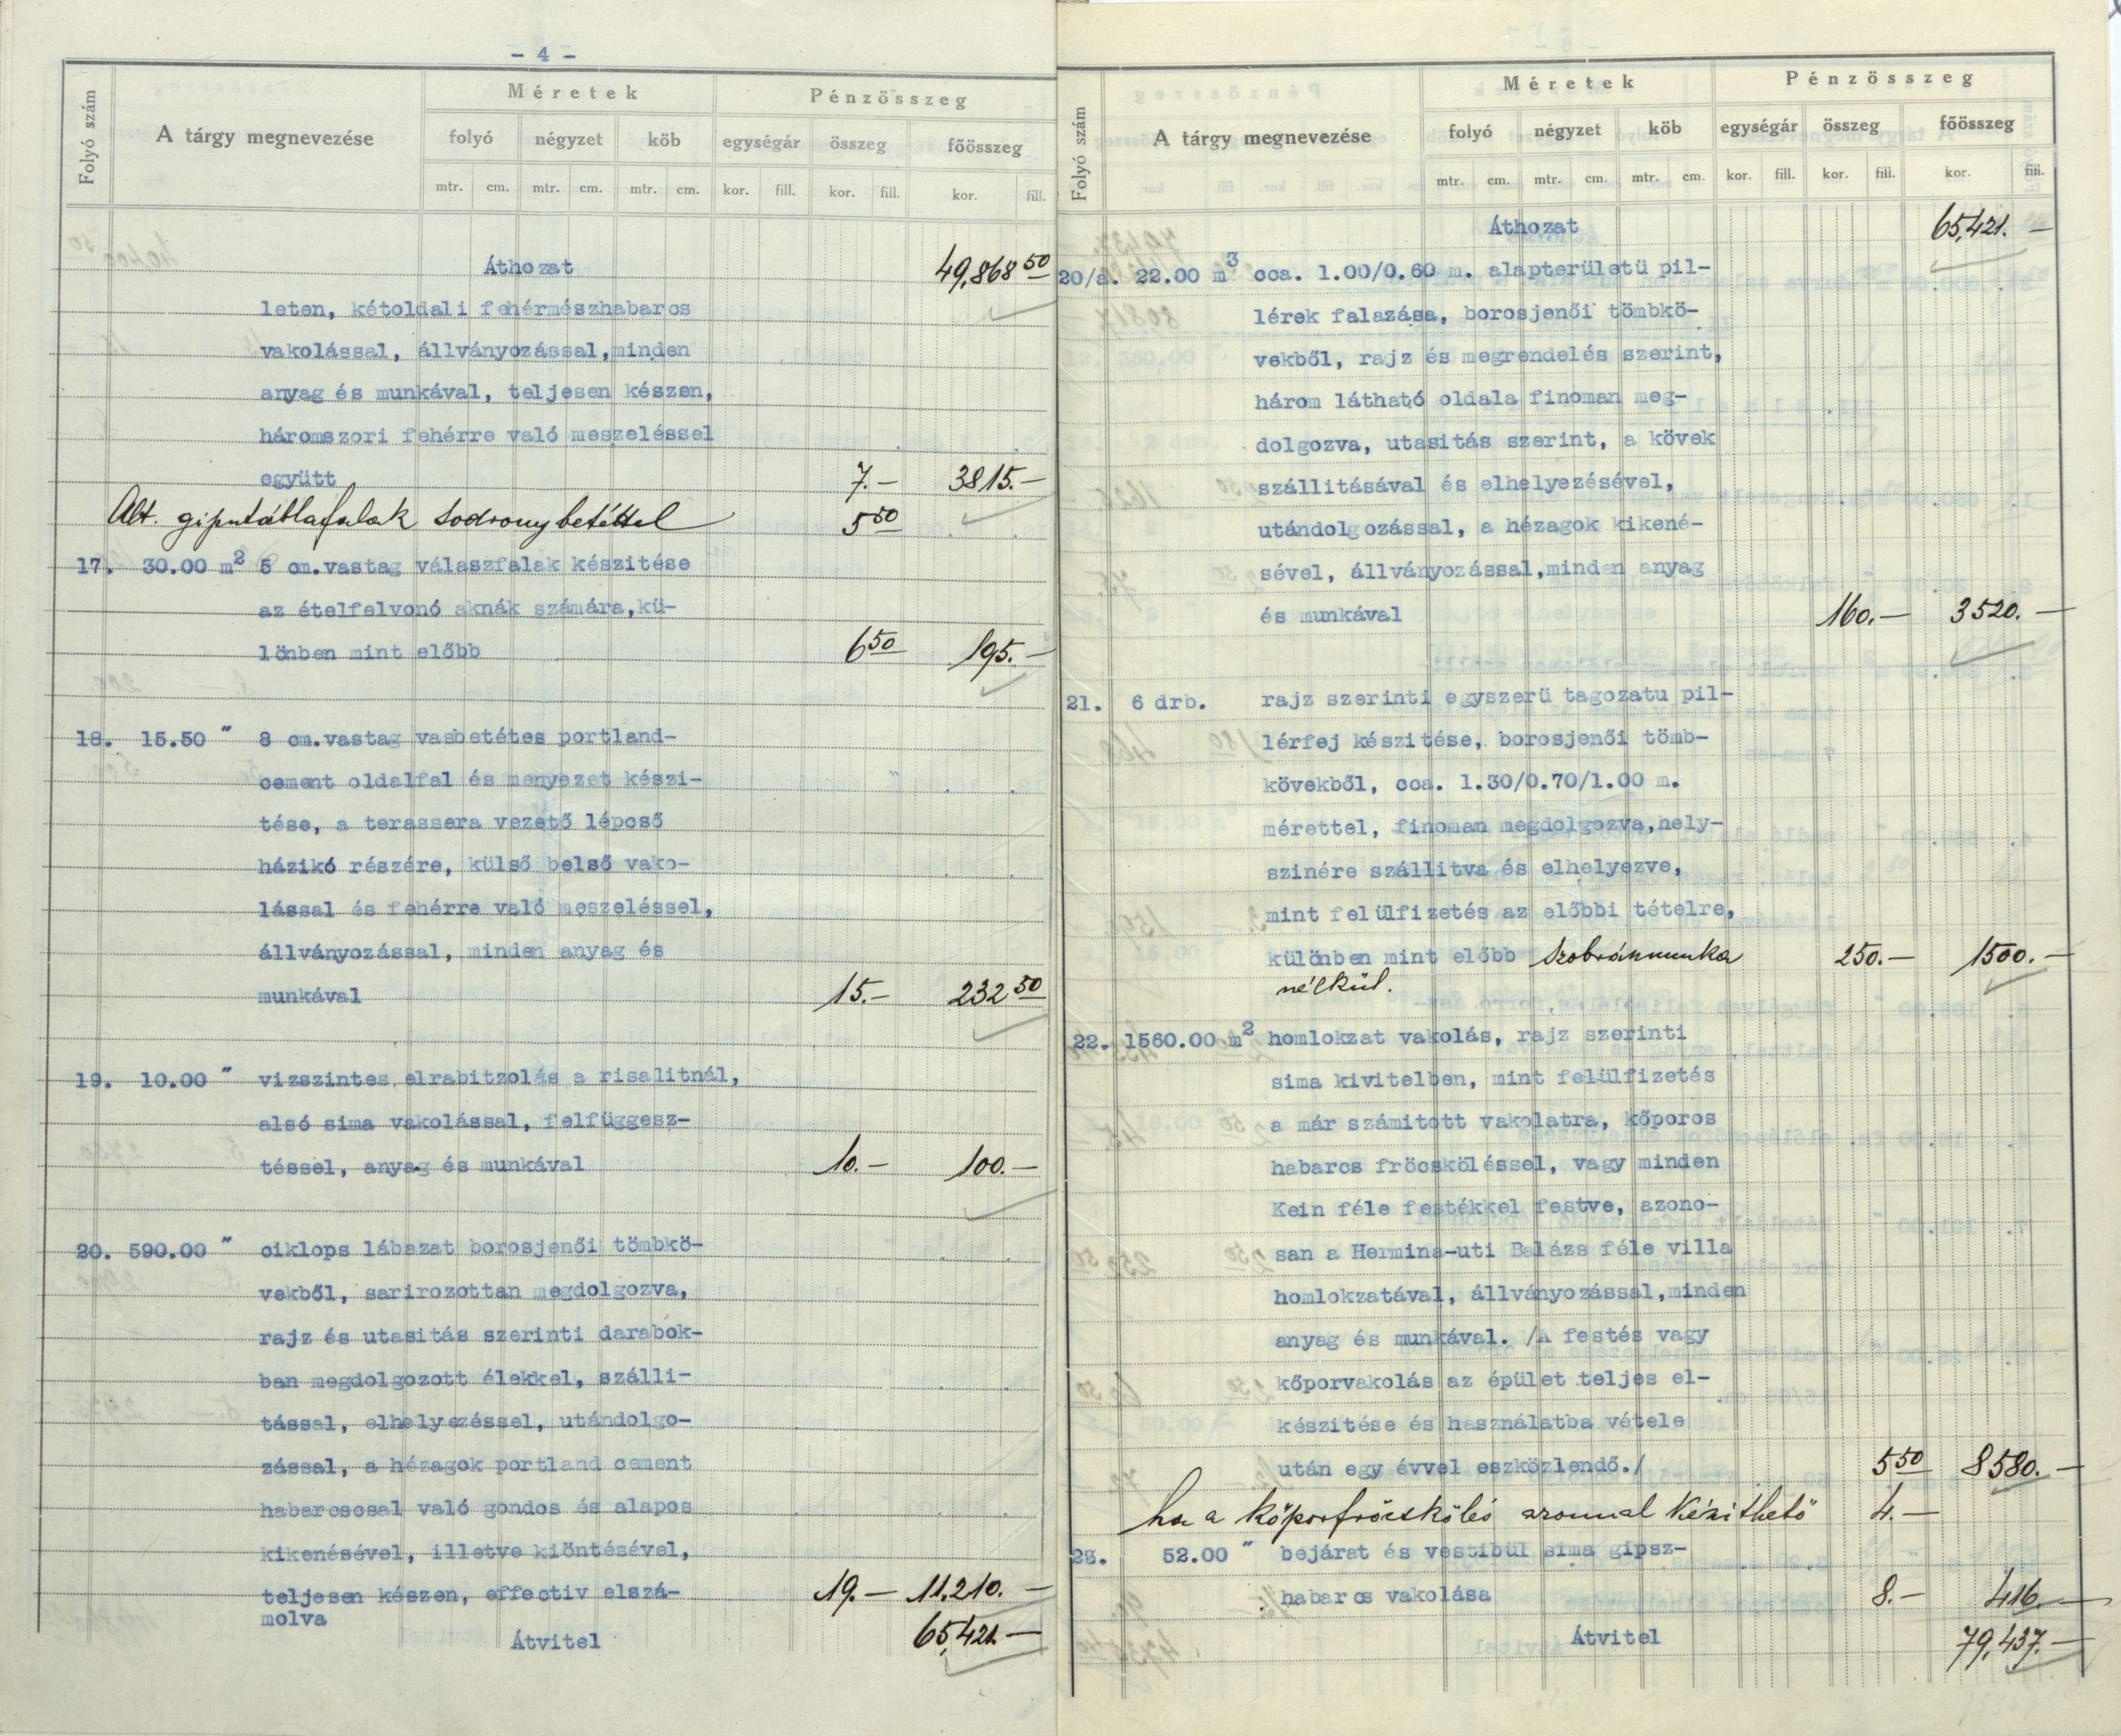 - 4 -
Folyó szám
A tárgy megnevezése
Méretek
Pénzösszeg
folyó négyzet köb egységár összeg főösszeg
mtr. cm. mtr. cm. mtr. cm. kor. fill. kor. fill. kor. fill.
Áthozat 49,868 50
leten, kétoldali fehérmészhabarcs
vakolással, állványozással,minden
anyag és munkával, teljesen készen,
háromszori fehérre való meszeléssel
együtt 7.- 3815.-
Alt. gipsztáblafalak sodronybetéttel 5 50
17. 30.00 m2 5 cm.vastag válaszfalak készitése
az ételfelvonó aknák számára,kü-
lönben mint előbb 6 50 195.-
18. 15.50 " 8 cm.vastag vasbetétes portland-
cement oldalfal és menyezet készi-
tése, a terassera vezető lépcső
házikó részére, külső belső vako-
lással és fehérre való meszeléssel,
állványozással, minden anyag és
munkával 15.- 232 50
19. 10.00 " vizszintes elrabitzolás a risalitnál,
alsó sima vakolással, felfüggesz-
téssel, anyag és munkával 10.- 100.-
20. 590.00 " ciklops lábazat borosjenői tömbkö-
vekből, sarirozottan megdolgozva,
rajz és utasitás szerinti darabok-
ban megdolgozott élekkel, szálli-
tással, elhelyezéssel, utándolgo-
zással, a hézagok portland cement
habarcscsal való gondos és alapos
kikenésével, illetve kiöntésével,
teljesen készen, effectiv elszá- 19.- 11.210.-
molva
Átvitel 65,421.-
Folyó szám
A tárgy megnevezése
Méretek
Pénzösszeg
folyó négyzet köb egységár összeg főösszeg
mtr. cm. mtr. cm. mtr. cm. kor. fill. kor. fill. kor. fill.
Áthozat 65,421.-
20/a. 22.00 m3 cca. 1.00/0.60 m. alapterületü pil-
lérek falazása, borosjenői tömbkö-
vekből, rajz és megrendelés szerint,
három látható oldala finoman meg-
dolgozva, utasitás szerint, a kövek
szállitásával és elhelyezésével,
utándolgozással, a hézagok kikené-
sével, állványozással,minden anyag
és munkával 160.- 3520.-
21. 6 drb. rajz szerinti egyszerü tagozatu pil-
lérfej készitése, borosjenői tömb-
kövekből, cca. 1.30/0.70/1.00 m.
mérettel, finoman megdolgozva,hely-
szinére szállitva és elhelyezve,
mint felülfizetés az előbbi tételre,
különben mint előbb szobrászmunka 250.- 1500.-
nélkül.
22. 1560.00 m2 homlokzat vakolás, rajz szerinti
sima kivitelben, mint felülfizetés
a már számitott vakolatra, kőporos
habarcs fröcsköléssel, vagy minden
Kein féle festékkel festve, azono-
san a Hermina-uti Balázs féle villa
homlokzatával, állványozással,minden
anyag és munkával. /A festés vagy
kőporvakolás az épület teljes el-
készitése és használatba vétele
után egy évvel eszközlendő./ 5 50 8580.-
ha a kőporfröcskölés azonnal készithető 4.-
23. 52.00 " bejárat és vestibül sima gipsz-
habarcs vakolása 8.- 416.-
Átvitel 79,437.-